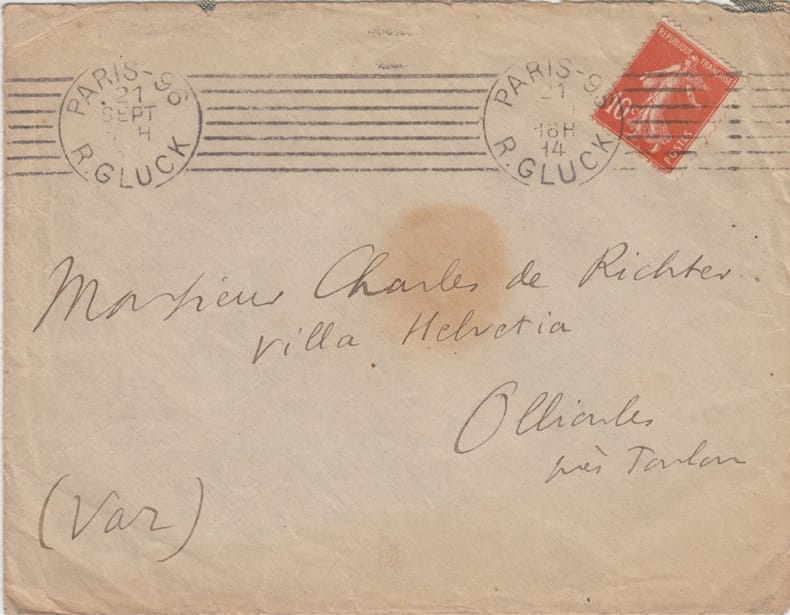 PARIS-96
21
SEPT
H
R. GLUCK
PARIS-96
21
18H
14
R. GLUCK
REPUBLIQUE FRANÇAISE
10c
POSTES
Monsieur Charles de Richter
Villa Helvetia
Ollioules
près Toulon
(Var)